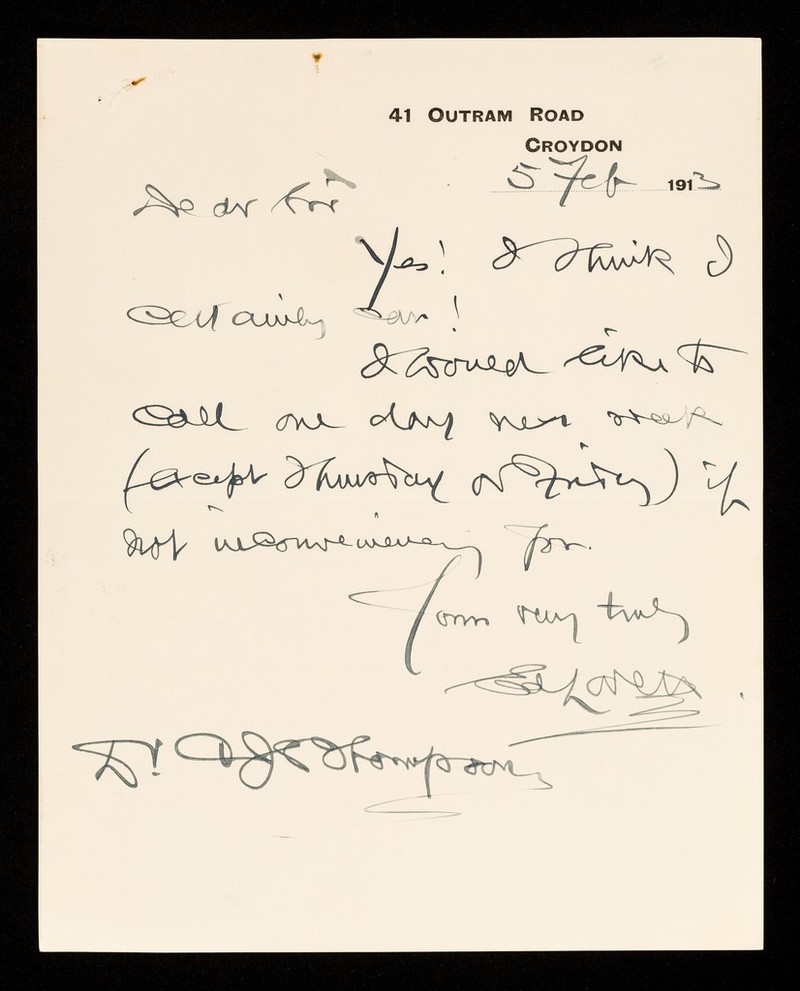 41 OUTRAM ROAD
CROYDON
5 Feb 1913
Dear Sir
Yes! I think I
certainly can!
I would like to
call one day next week
(except Thursday or Friday) if
not inconveniencing you.
Yours very truly
Ed Lovett
Dr. Thompson